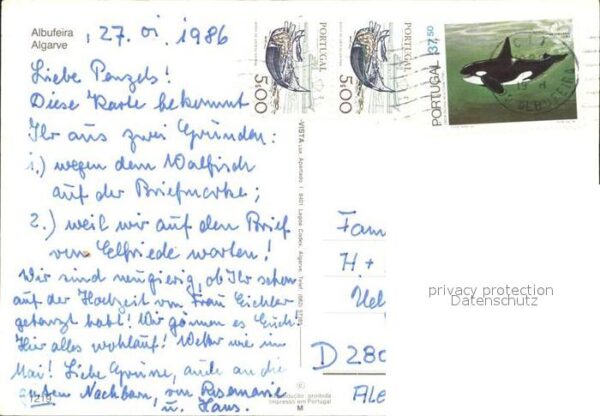 Albufeira
Algarve
27. 01. 1986
Liebe Penzels!
Diese Karte bekommt
Ihr aus zwei Gründen:
1.) wegen dem Walfisch
auf der Briefmarke;
2.) weil wir auf den Brief
von Elfriede warten!
Wir sind neugierig, ob Ihr schon
auf der Hochzeit von Frau Eichler
getanzt habt! Wir gönnen es Euch!
Hier alles wohlauf! Wetter wie im
Mai! Liebe Grüsse, auch an die
guten Nachbarn, von Rosemarie
u. Hans.
1219
PORTUGAL
5.00
PORTUGAL
5.00
PORTUGAL 37.50
-VISTA
Apartado 1 8401 Lagoa Codex, Algarve, Telef.
Fam
H. +
D 280
©
proibida
Impresso em Portugal
M
privacy protection
Datenschutz